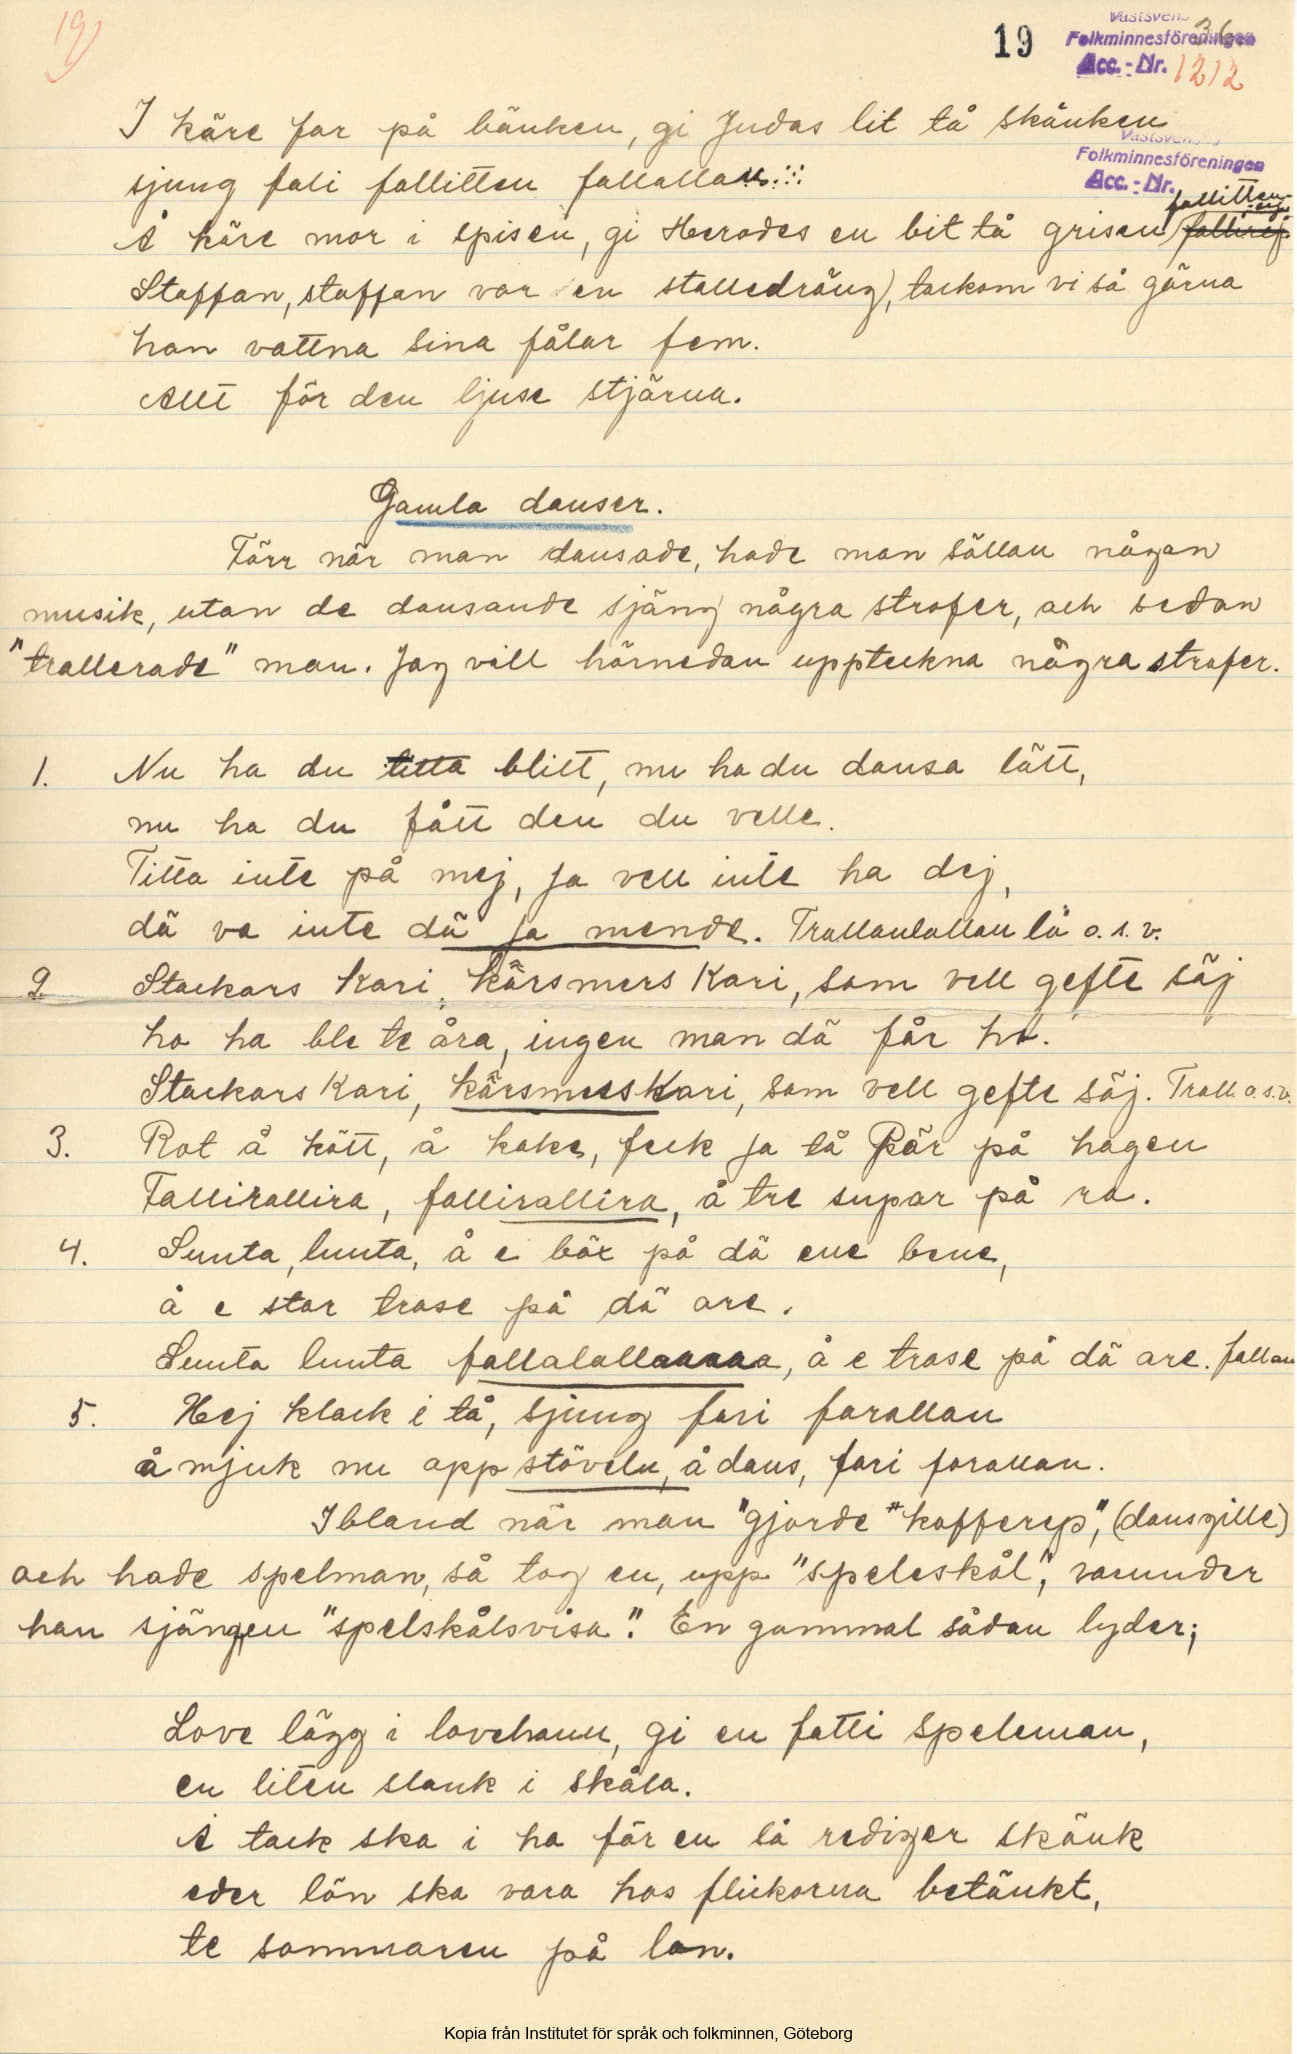 19)
19
36
Västsvens
Folkminnesföreningen
Acc.-Nr. 1212
I käre far på bänken, gi Judas lit tå skänken
Västsvens
Folkminnesföreningen
Acc.-Nr.
sjung fali fallitten fallallan.:::
fallitten
Å käre mor i spisen, gi Herodes en bit tå grisen,
Staffan, staffan var en stalledräng, tackom vi så gärna
han vattna sina fålar fem.
Allt för den ljuse stjärna.
Gamla danser.
Förr när man dansade, hade man sällan någon
musik, utan de dansande sjäng några strofer, och sedan
"trallerade" man. Jag vill härnedan uppteckna några strofer.
1. Nu ha du titta blitt, nu ha du dansa lätt,
nu ha du fått den du velle.
Titta inte på mej, ja vell inte ha dej,
dä va inte dä ja mende. Trallanlallan la o.s.v.
2 Stackars Kari, kärsmers Kari, som vell gefte säj
ho ha ble te åra, ingen man dä får ho.
Stackars Kari, kärsmersKari, som vell gefte säj. Trall. o.s.v.
3. Rot å kött, å kake, feck ja tå Pär på hagen
Fallirallira, fallirallira, å tre supar på ra.
4. Sunta, lunta, å e böx på dä ene bene,
å e stor trase på dä are.
Sunta lunta fallalallaaaaa, å e trase på dä are. fallan
5. Hej klack i tå, sjung fari farallan
å mjuk nu opp stöveln, å dans, fari farallan.
Ibland när man "gjorde "kafferep", (dansgille)
och hade spelman, så tog en, upp "speleskål", varunder
han sjängen "spelskålsvisa". En gammal sådan lyder;
Love lägg i lovehann, gi en fatti speleman,
en liten slank i skåla.
Å tack ska i ha för en så rediger skänk
eder lön ska vara hos flickorna betänkt,
te sommaren på lon.
Kopia från Institutet för språk och folkminnen, Göteborg